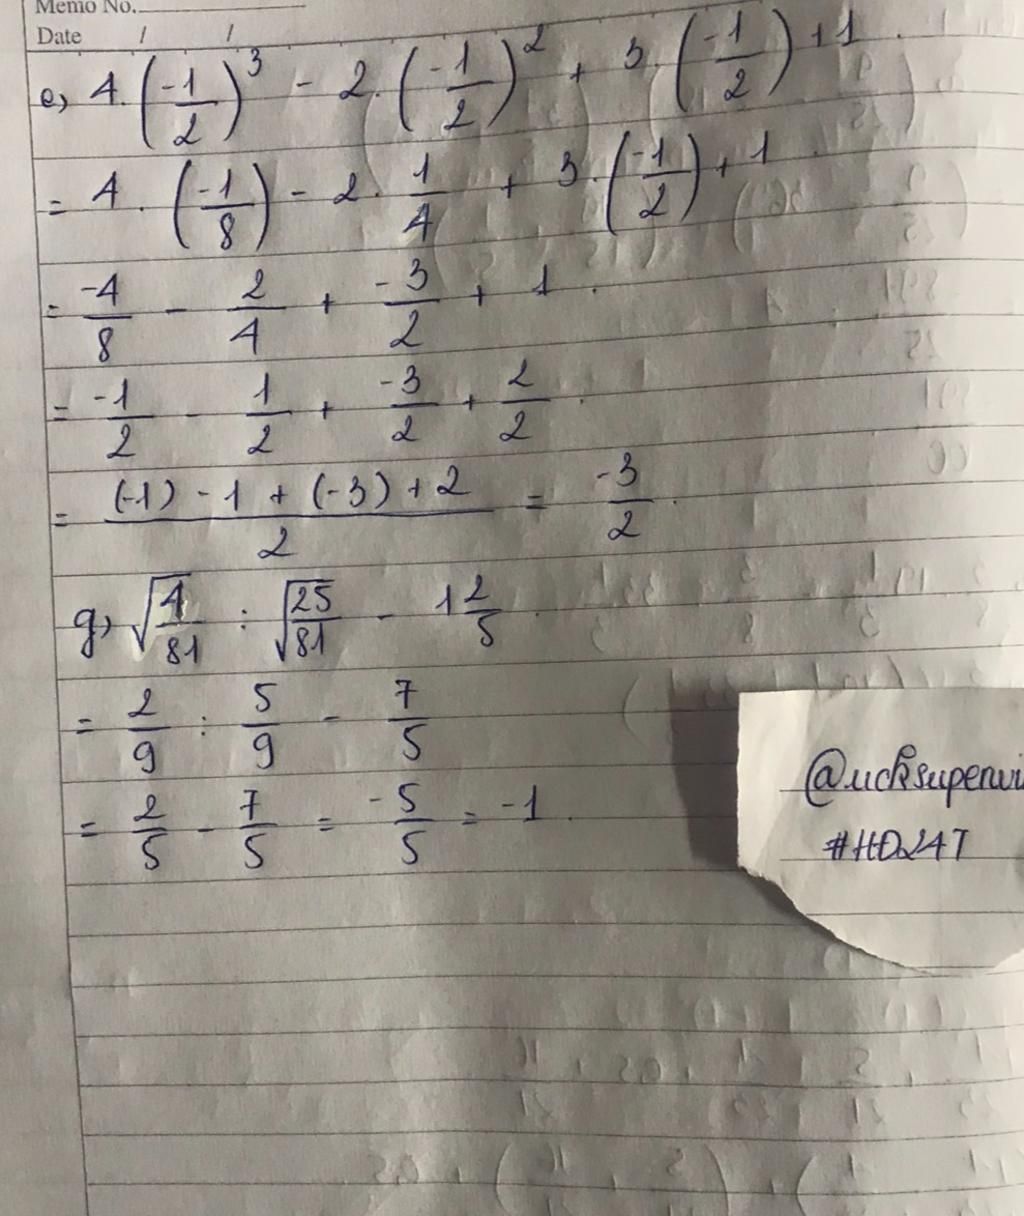 Memo No.
Date / /
e, 4. (-1/2)^3 - 2. (-1/2)^2 + 3. (-1/2) + 1.
= 4. (-1/8) - 2. 1/4 + 3. (-1/2) + 1.
= -4/8 - 2/4 + -3/2 + 1.
= -1/2 - 1/2 + -3/2 + 2/2.
= (-1) - 1 + (-3) + 2 / 2 = -3/2.
g, √4/81 : √25/81 - 1 2/5.
= 2/9 : 5/9 - 7/5
= 2/5 - 7/5 = -5/5 = -1.
#HD247